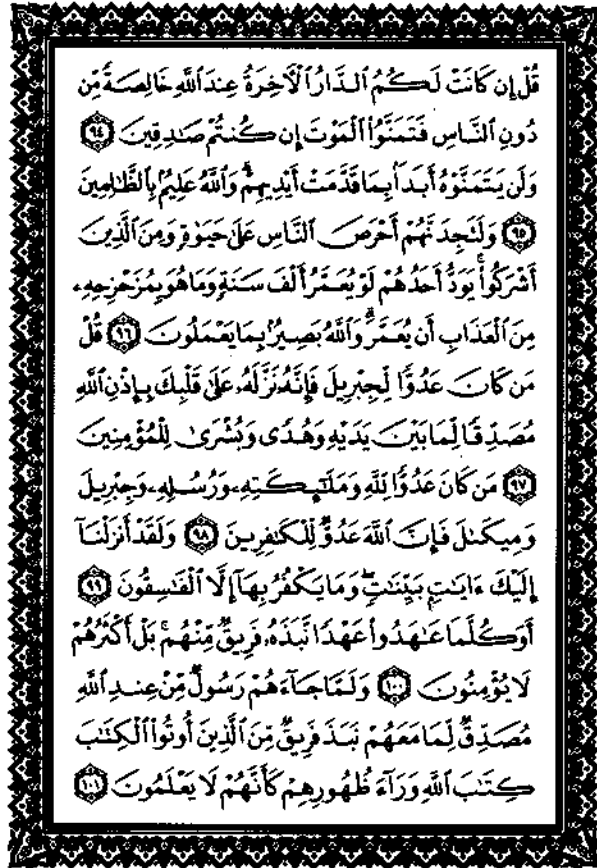 قُلْ إِن كَانَتْ لَكُمُ ٱلدَّارُ ٱلْأَخِرَةُ عِندَ ٱللَّهِ خَالِصَةً مِّن
دُونِ ٱلنَّاسِ فَتَمَنَّوُاْ ٱلْمَوْتَ إِن كُنتُمْ صَٰدِقِينَ ٩٤
وَلَن يَتَمَنَّوْهُ أَبَدَۢا بِمَا قَدَّمَتْ أَيْدِيهِمْۗ وَٱللَّهُ عَلِيمُۢ بِٱلظَّٰلِمِينَ
٩٥ وَلَتَجِدَنَّهُمْ أَحْرَصَ ٱلنَّاسِ عَلَىٰ حَيَوٰةٍ وَمِنَ ٱلَّذِينَ
أَشْرَكُواْۚ يَوَدُّ أَحَدُهُمْ لَوْ يُعَمَّرُ أَلْفَ سَنَةٍ وَمَا هُوَ بِمُزَحْزِحِهِۦ
مِنَ ٱلْعَذَابِ أَن يُعَمَّرَۗ وَٱللَّهُ بَصِيرُۢ بِمَا يَعْمَلُونَ ٩٦ قُلْ
مَن كَانَ عَدُوًّا لِّجِبْرِيلَ فَإِنَّهُۥ نَزَّلَهُۥ عَلَىٰ قَلْبِكَ بِإِذْنِ ٱللَّهِ
مُصَدِّقًا لِّمَا بَيْنَ يَدَيْهِ وَهُدًى وَبُشْرَىٰ لِلْمُؤْمِنِينَ
٩٧ مَن كَانَ عَدُوًّا لِّلَّهِ وَمَلَٰٓئِكَتِهِۦ وَرُسُلِهِۦ وَجِبْرِيلَ
وَمِيكَىٰلَ فَإِنَّ ٱللَّهَ عَدُوٌّ لِّلْكَٰفِرِينَ ٩٨ وَلَقَدْ أَنزَلْنَآ
إِلَيْكَ ءَايَٰتٍۭ بَيِّنَٰتٍۖ وَمَا يَكْفُرُ بِهَآ إِلَّا ٱلْفَٰسِقُونَ ٩٩
أَوَكُلَّمَا عَٰهَدُواْ عَهْدًا نَّبَذَهُۥ فَرِيقٌ مِّنْهُمۚ بَلْ أَكْثَرُهُمْ
لَا يُؤْمِنُونَ ١٠٠ وَلَمَّا جَآءَهُمْ رَسُولٌ مِّنْ عِندِ ٱللَّهِ
مُصَدِّقٌ لِّمَا مَعَهُمْ نَبَذَ فَرِيقٌ مِّنَ ٱلَّذِينَ أُوتُواْ ٱلْكِتَٰبَ
كِتَٰبَ ٱللَّهِ وَرَآءَ ظُهُورِهِمْ كَأَنَّهُمْ لَا يَعْلَمُونَ ١٠١